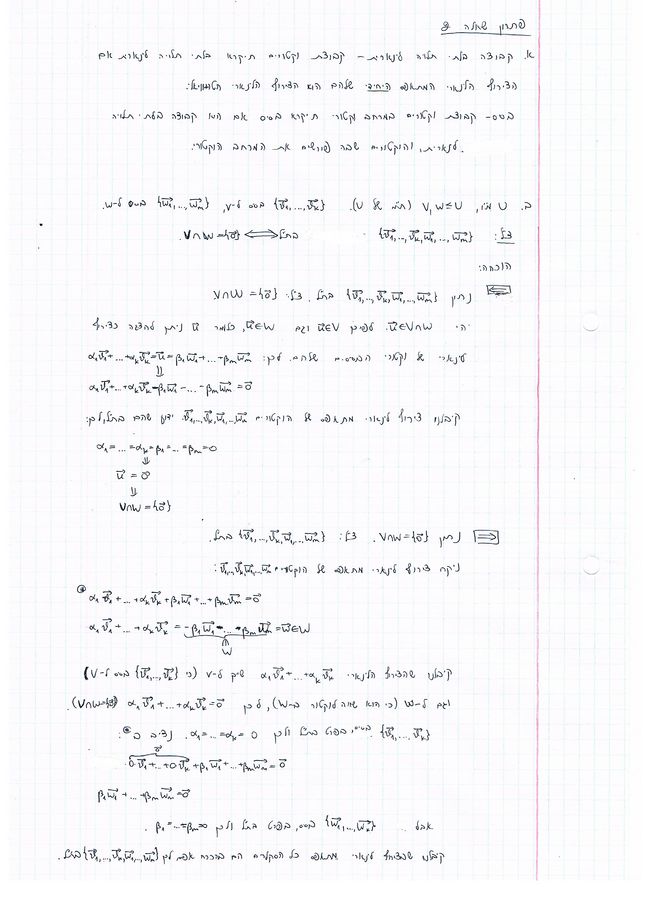 פתרון שאלה 8
א. קבוצה בלתי תלויה לינארית - קבוצת וקטורים תיקרא בלתי תלויה לינארית אם
הצירוף הלינארי המתאפס היחיד שלהם הוא הצירוף הלינארי הטריוויאלי.
בסיס - קבוצת וקטורים במרחב וקטורי תיקרא בסיס אם היא קבוצה בלתי תלויה
לינארית, והוקטורים שבה פורשים את המרחב הוקטורי.
ב. U מ"ו, V,W≤U (תמ"ו של U). {v⃗1,...,v⃗k} בסיס ל-V, {w⃗1,...,w⃗m} בסיס ל-W.
צ"ל: {v⃗1,...,v⃗k,w⃗1,...,w⃗m} בת"ל ⟺ V∩W={0⃗}.
הוכחה:
⇐ נתון {v⃗1,...,v⃗k,w⃗1,...,w⃗m} בת"ל. צ"ל: V∩W={0⃗}
יהי u⃗∈V∩W. לפיכך u⃗∈V וגם u⃗∈W, כלומר u⃗ ניתן להצגה כצירוף
לינארי של וקטורי הבסיסים שלהם. לכן: α1v⃗1+...+αkv⃗k=u⃗=β1w⃗1+...+βmw⃗m
⇓
α1v⃗1+...+αkv⃗k-β1w⃗1-...-βmw⃗m=0⃗
קיבלנו צירוף לינארי מתאפס של הוקטורים v⃗1,...,v⃗k,w⃗1,...,w⃗m. ידוע שהם בת"ל, לכן:
α1=...=αk=β1=...=βm=0
⇓
u⃗=0⃗
⇓
V∩W={0⃗}
⇒ נתון V∩W={0⃗}. צ"ל: {v⃗1,...,v⃗k,w⃗1,...,w⃗m} בת"ל.
ניקח צירוף לינארי מתאפס של הוקטורים v⃗1,...,v⃗k,w⃗1,...,w⃗m:
α1v⃗1+...+αkv⃗k+β1w⃗1+...+βmw⃗m=0⃗
α1v⃗1+...+αkv⃗k=-β1w⃗1-...-βmw⃗m=w⃗∈W
W
קיבלנו שהצירוף הלינארי α1v⃗1+...+αkv⃗k שייך ל-V (כי {v⃗1,...,v⃗k} בסיס ל-V)
וגם ל-W (כי הוא שווה לוקטור ב-W), לכן α1v⃗1+...+αkv⃗k=0⃗ (V∩W={0⃗}).
{v⃗1,...,v⃗k} בסיס, בפרט בת"ל ולכן α1=...=αk=0. נציב ב:
0⃗
0v⃗1+...+0v⃗k+β1w⃗1+...+βmw⃗m=0⃗
β1w⃗1+...+βmw⃗m=0⃗
אבל {w⃗1,...,w⃗m} בסיס, בפרט בת"ל ולכן β1=...=βm=0.
קיבלנו שבצירוף לינארי מתאפס כל הסקלרים הם בהכרח אפס לכן {v⃗1,...,v⃗k,w⃗1,...,w⃗m} בת"ל.